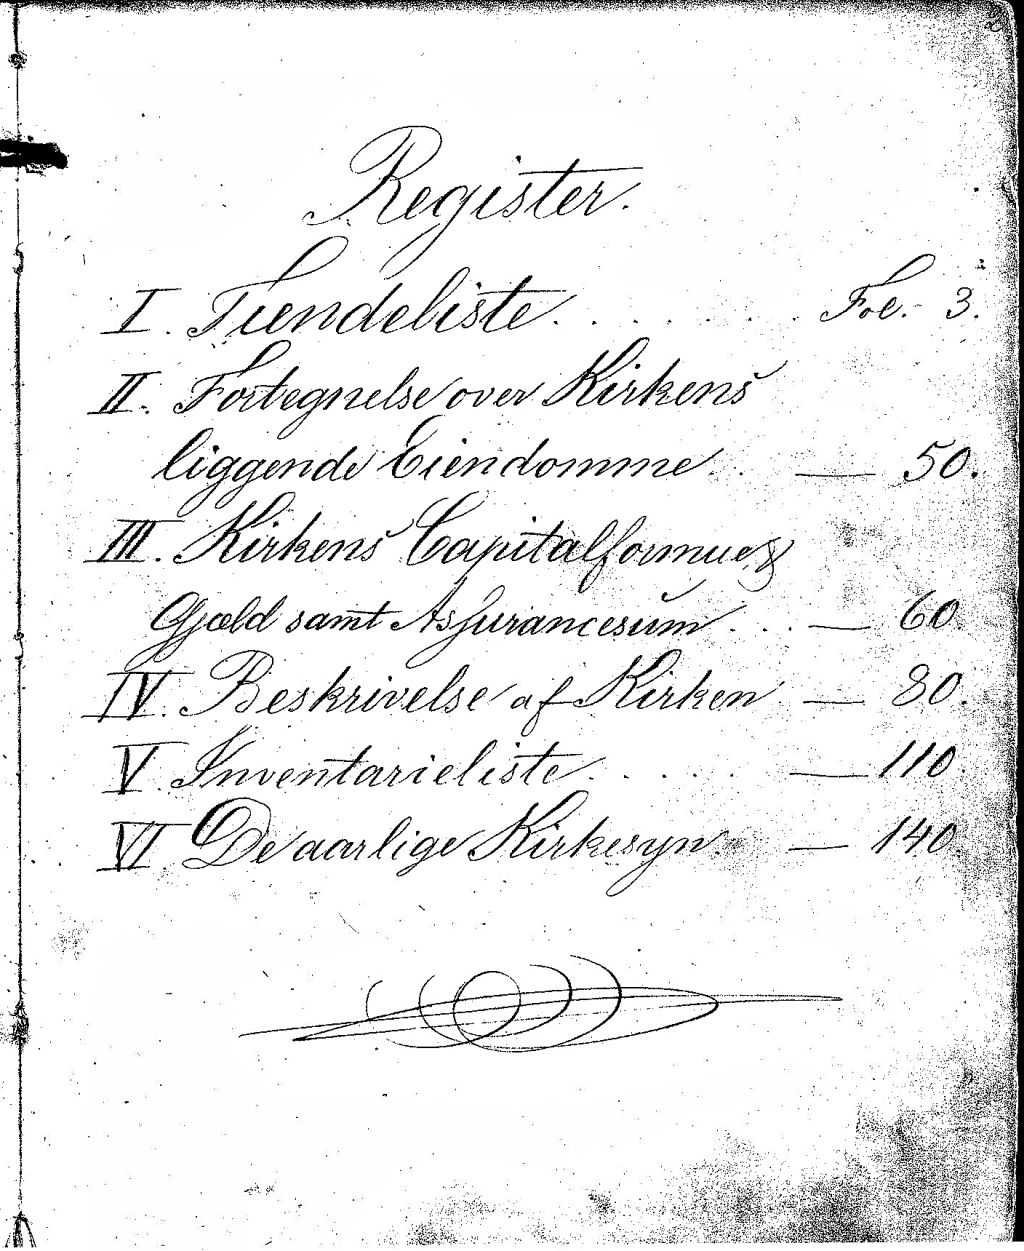 2
Register.
I. Tiendeliste. . . . . . . Fol. 3.
II. Fortegnelse over Kirkens
liggende Eiendomme. . — 50.
III. Kirkens Capitalformue &
Gjæld samt Assurancesum . . . — 60.
IV. Beskrivelse af Kirken — 80.
V. Inventarieliste. . . . . . — 110.
VI De aarlige Kirkesyn. — 140.